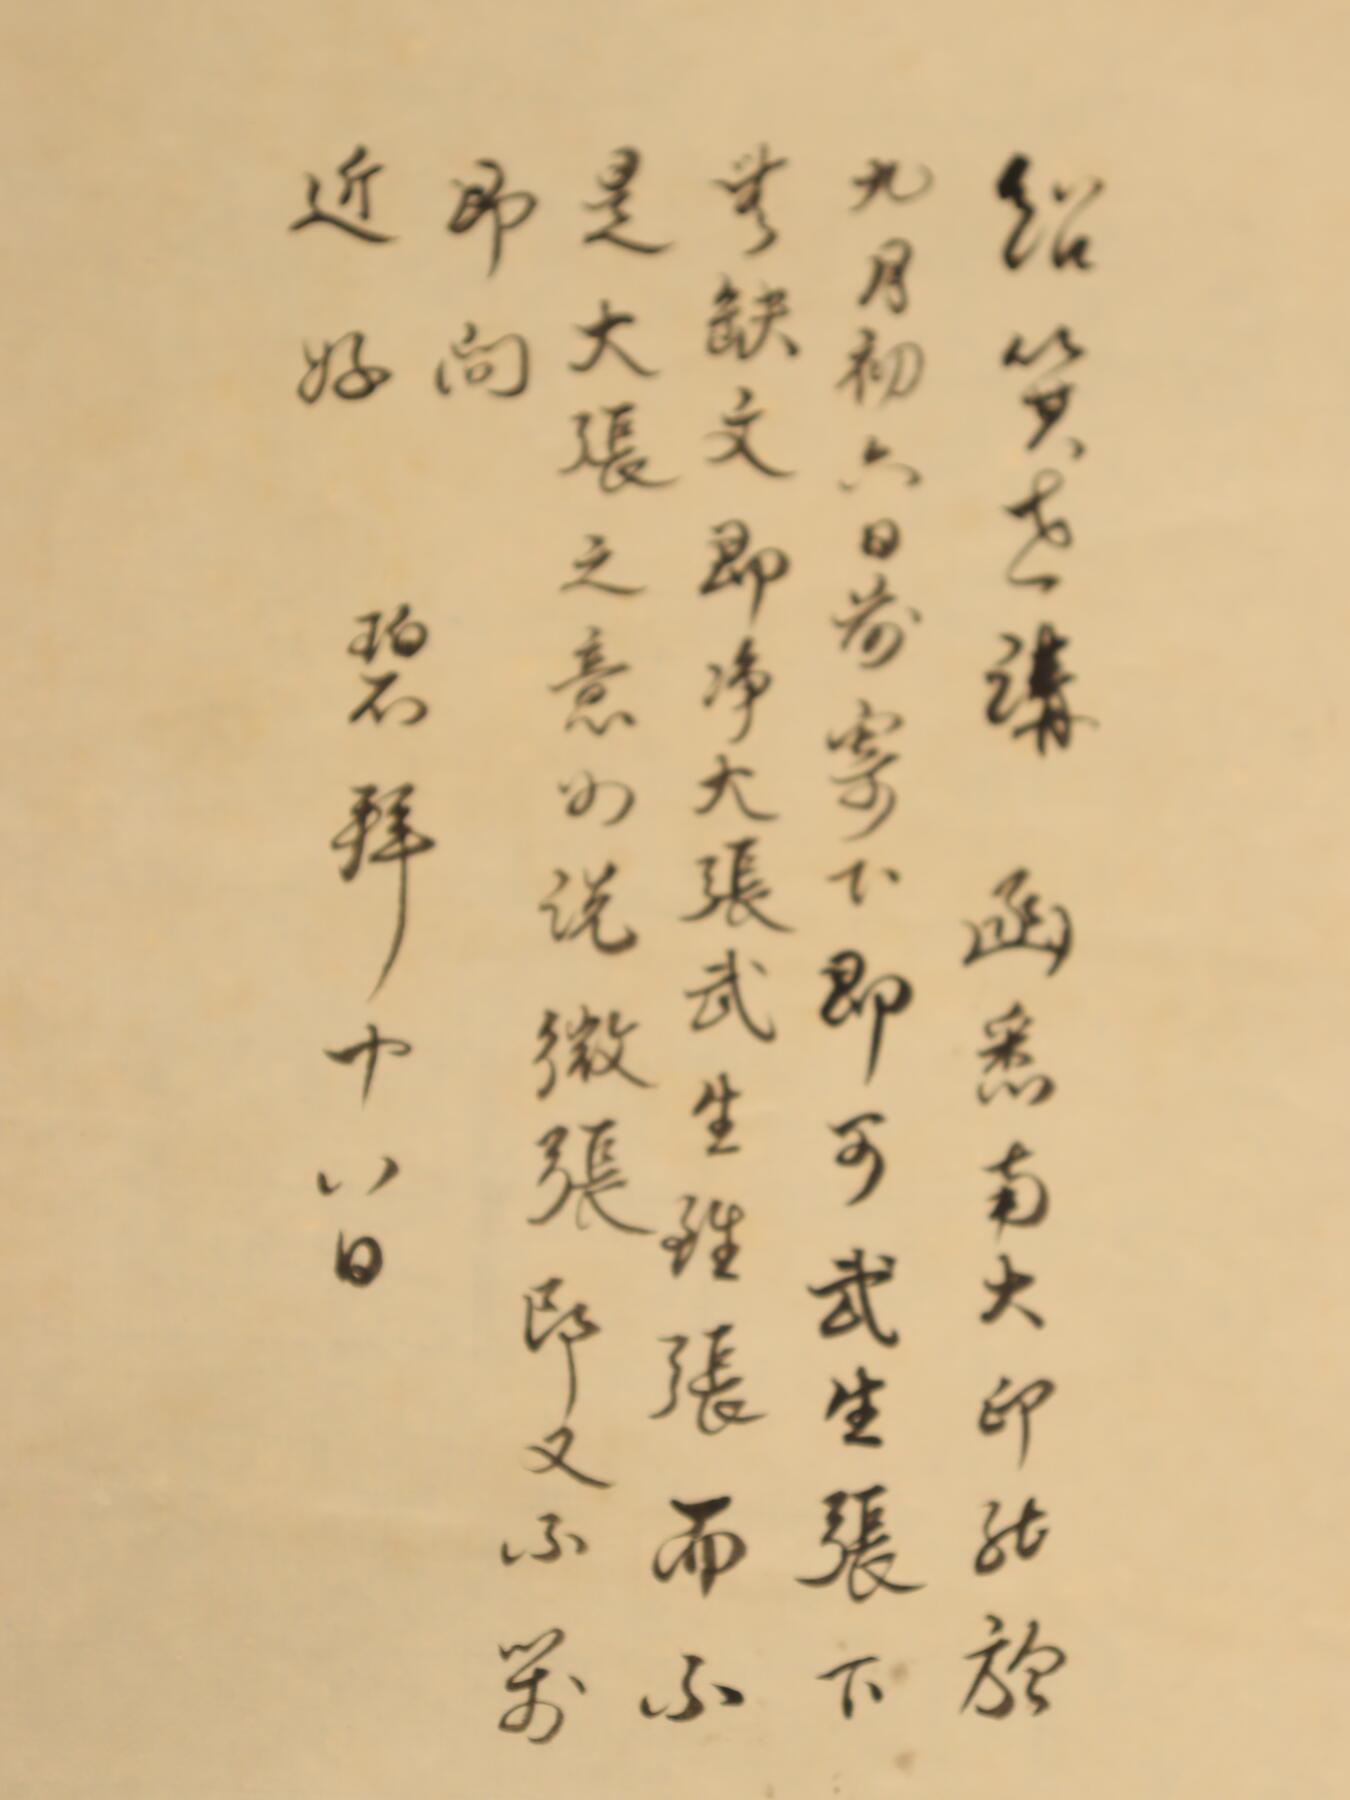 紹箕世講 函悉南大印能於
九月初六日前寄下即可武生張下
無缺文即淨大張武生雖張而不
是大張之意如說微張即又不署
即問
近好
碧拜 十八日